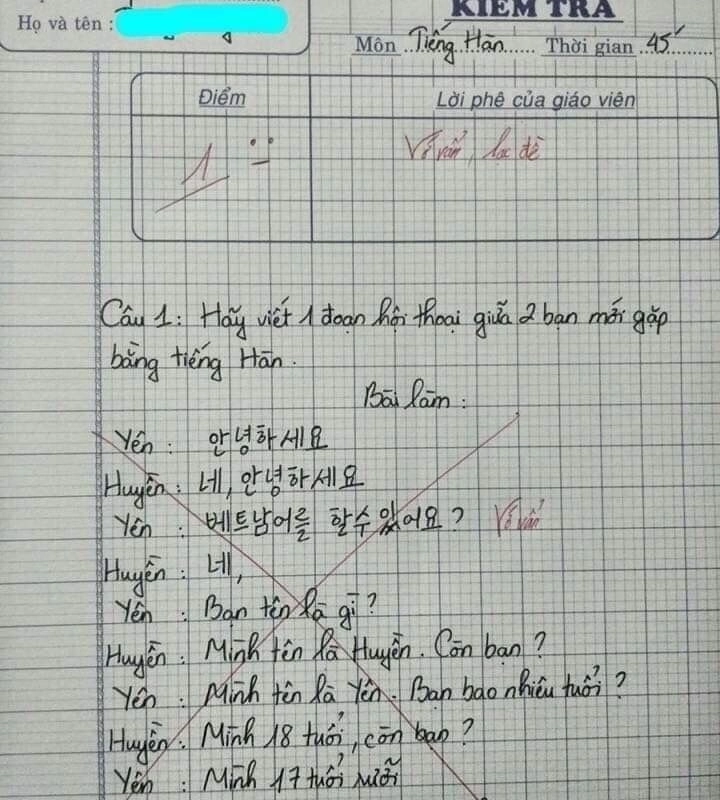 KIỂM TRA
Họ và tên :
Môn ..Tiếng Hàn...... Thời gian ..45'.........
Điểm
Lời phê của giáo viên
1
Vớ vẩn, lạc đề
Câu 1: Hãy viết 1 đoạn hội thoại giữa 2 bạn mới gặp
bằng tiếng Hàn.
Bài làm:
Yến : 안녕하세요
Huyền : 네, 안녕하세요
Yến : 베트남어를 할수 있어요? Vớ vẩn
Huyền : 네,
Yến : Bạn tên là gì?
Huyền : Mình tên là Huyền. Còn bạn?
Yến : Mình tên là Yến. Bạn bao nhiêu tuổi?
Huyền : Mình 18 tuổi, còn bạn?
Yến : Mình 17 tuổi rưỡi